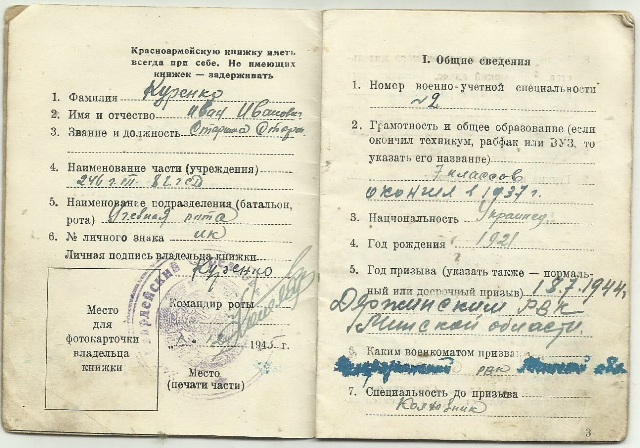 Красноармейскую книжку иметь
всегда при себе. Не имеющих
книжек — задерживать
1. Фамилия Куренко
2. Имя и отчество Иван Иванович
3. Звание и должность Старшина
4. Наименование части (учреждения)
246 г.п. 82 гсд
5. Наименование подразделения (батальон,
рота) Учебная рота
6. № личного знака
Личная подпись владельца книжки
Куренко
Командир роты
1945 г.
Место
для
фотокарточки
владельца
книжки
Место
(печати части)
I. Общие сведения
1. Номер военно-учетной специальности
№2
2. Грамотность и общее образование (если
окончил техникум, рабфак или ВУЗ, то
указать его название)
7 классов
окончил в 1937 г.
3. Национальность Украинец
4. Год рождения 1921
5. Год призыва (указать также — нормаль-
ный или досрочный призыв) 18.7.1944,
Держинским РВК
Минской области.
6. Каким военкоматом призван
РВК Минской обл.
7. Специальность до призыва
3